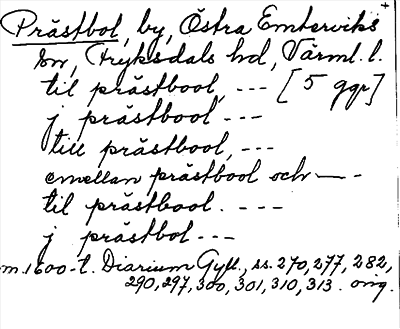 Prästbol, by, Östra Emterviks
sn, Fryksdals hd, Värml. l.
til prästbool, --- [5 ggr]
j prästbool ---
till prästbool, ---
emellan prästbool och ---
til prästbool. ---
j prästbol ---
m. 1600-t. Diarium Gyll., ss. 270, 277, 282,
290, 297, 300, 301, 310, 313. orig.